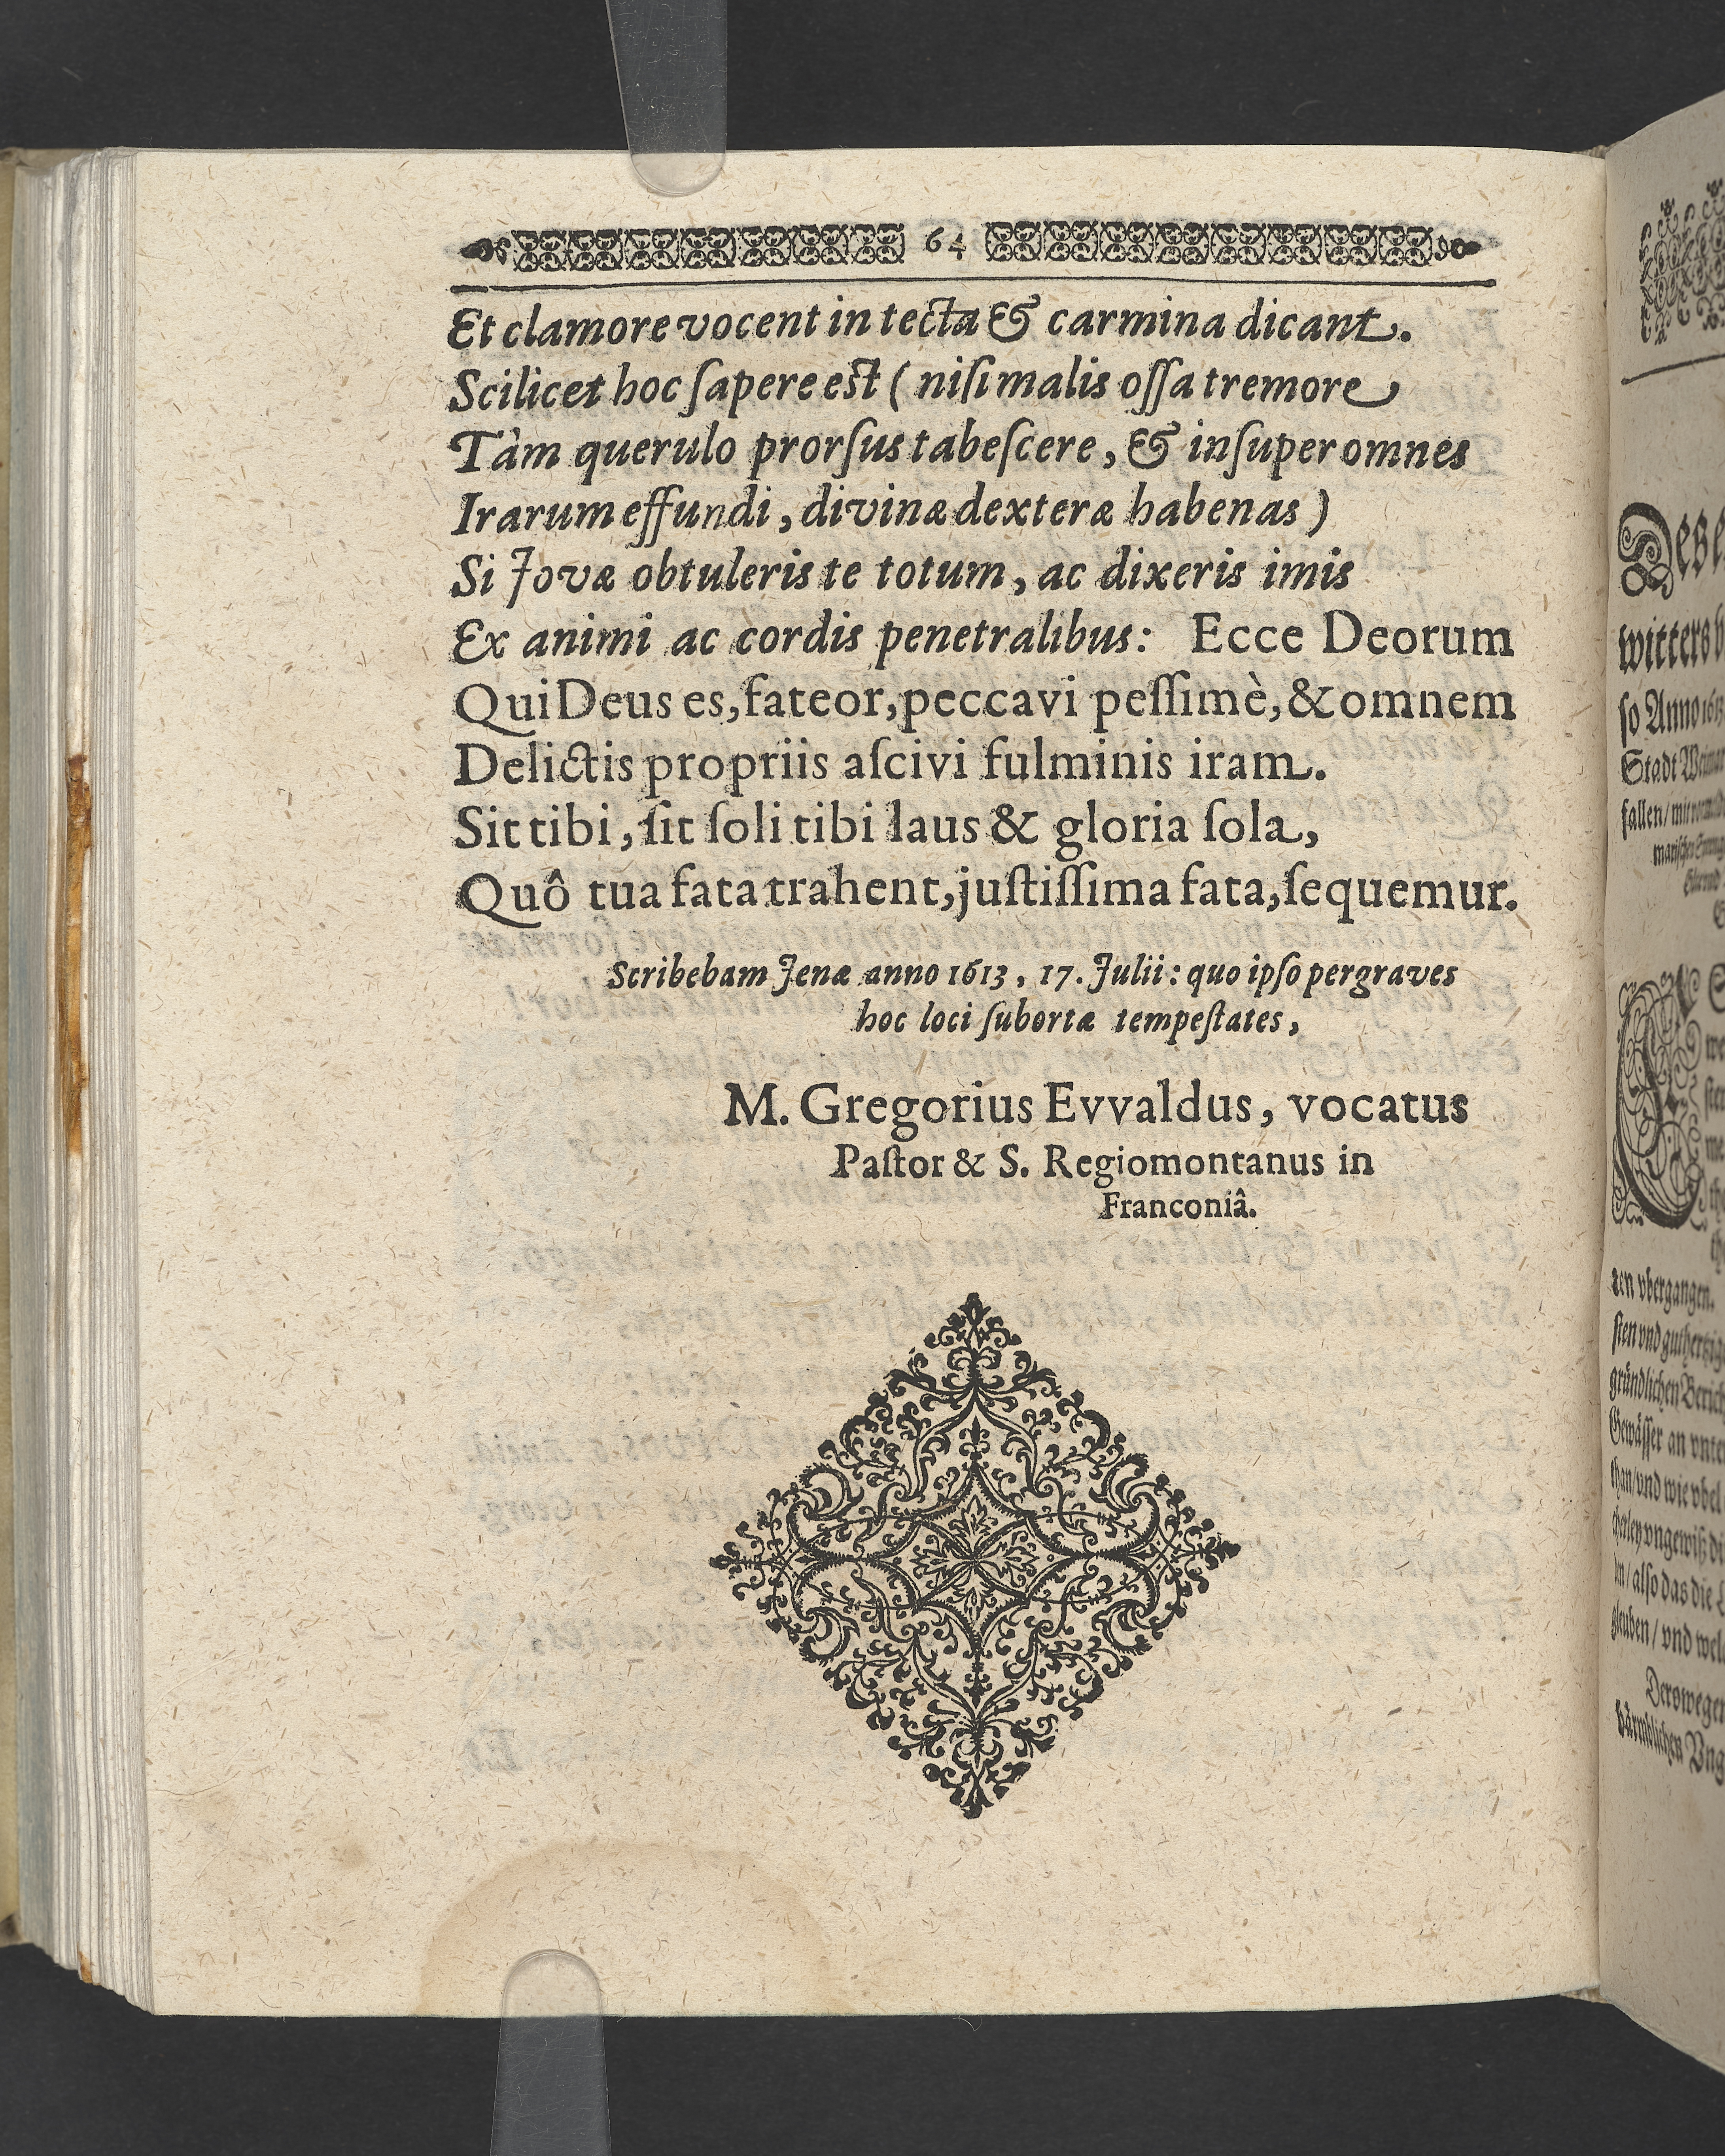 64
Et clamore vocent in tecta & carmina dicant.
Scilicet hoc ſapere est ( niſi malis oſſa tremore
Tàm querulo prorſus tabeſcere, & inſuper omnes
Irarum effundi, divinæ dexteræ habenas )
Si Jovæ obtuleris te totum, ac dixeris imis
Ex animi ac cordis penetralibus: Ecce Deorum
Qui Deus es, fateor, peccavi peſſimè, & omnem
Delictis propriis aſcivi fulminis iram.
Sit tibi, ſit ſoli tibi laus & gloria ſola,
Quô tua fata trahent, juſtiſſima fata, ſequemur.
Scribebam Jenæ anno 1613, 17. Julii: quo ipſo pergraves
hoc loci ſubortæ tempeſtates,
M. Gregorius Evvaldus, vocatus
Paſtor & S. Regiomontanus in
Franconiâ.
witters
ſo Anno 1613
Stadt
fallen/
ten vbergangen.
ſten vnd
gründlichen
Gewäſſer an
than/ vnd wie vbel
im/ alſo das die
gleuben/ vnd